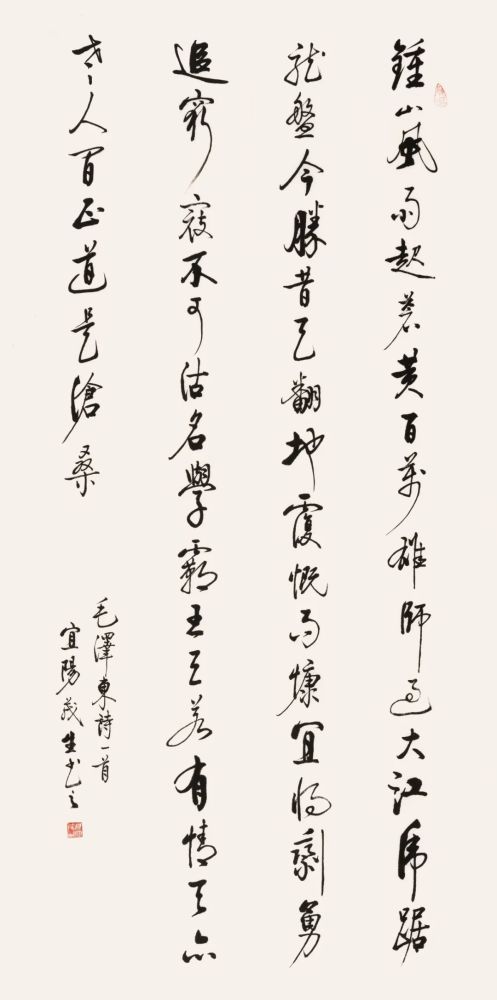 鍾山風雨起蒼黄百萬雄師過大江虎踞
龍盤今勝昔天翻地覆慨而慷宜將剩勇
追窮寇不可沽名學霸王天若有情天亦
老人間正道是滄桑
毛澤東詩一首
宜陽茂生书之